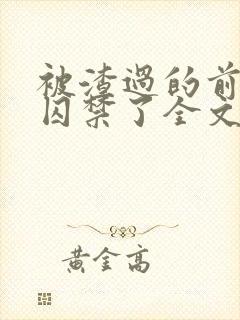 被渣过的前
囚禁了全文
黄金高